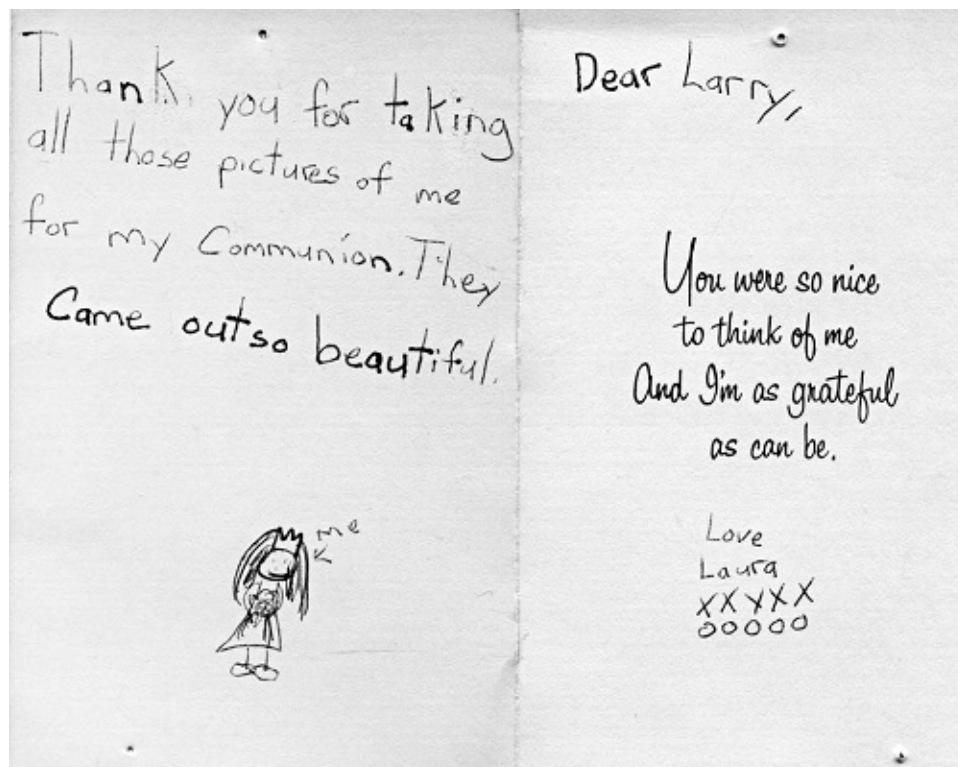 Thank you for taking
all those pictures of me
for my Communion. They
Came out so beautiful.
me
Dear Larry,
You were so nice
to think of me
And I'm as grateful
as can be.
Love
Laura
XXXXX
OOOOO